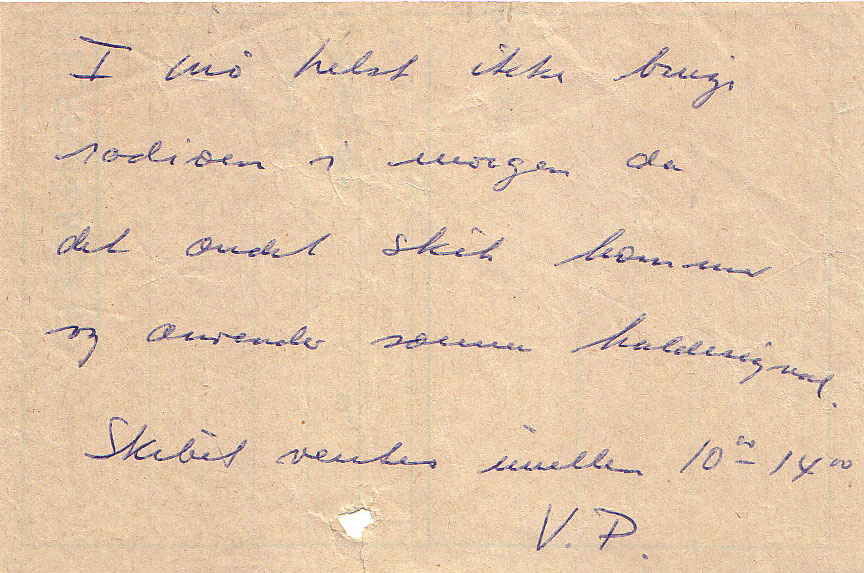 I må helst ikke bruge
radioen i morgen da
det andet skib kommer
og anvender samme kaldesignal.
Skibet ventes imellem 10⁰⁰ - 14⁰⁰
V. P.